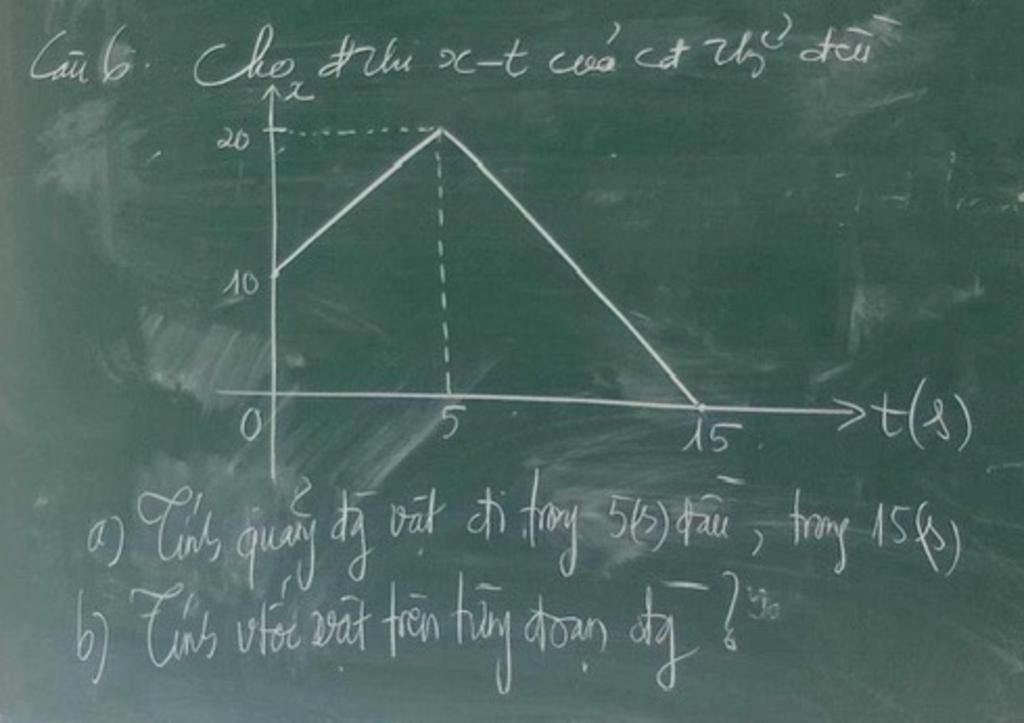 Câu 6. Cho đthị x-t của cđ thg̉ đều
x
20
10
0 5 15 t(s)
a) Tính quãng đg̀ vật đi trong 5(s) đầu, trong 15(s)
b) Tính vtốc vật trên từng đoạn đg̀?